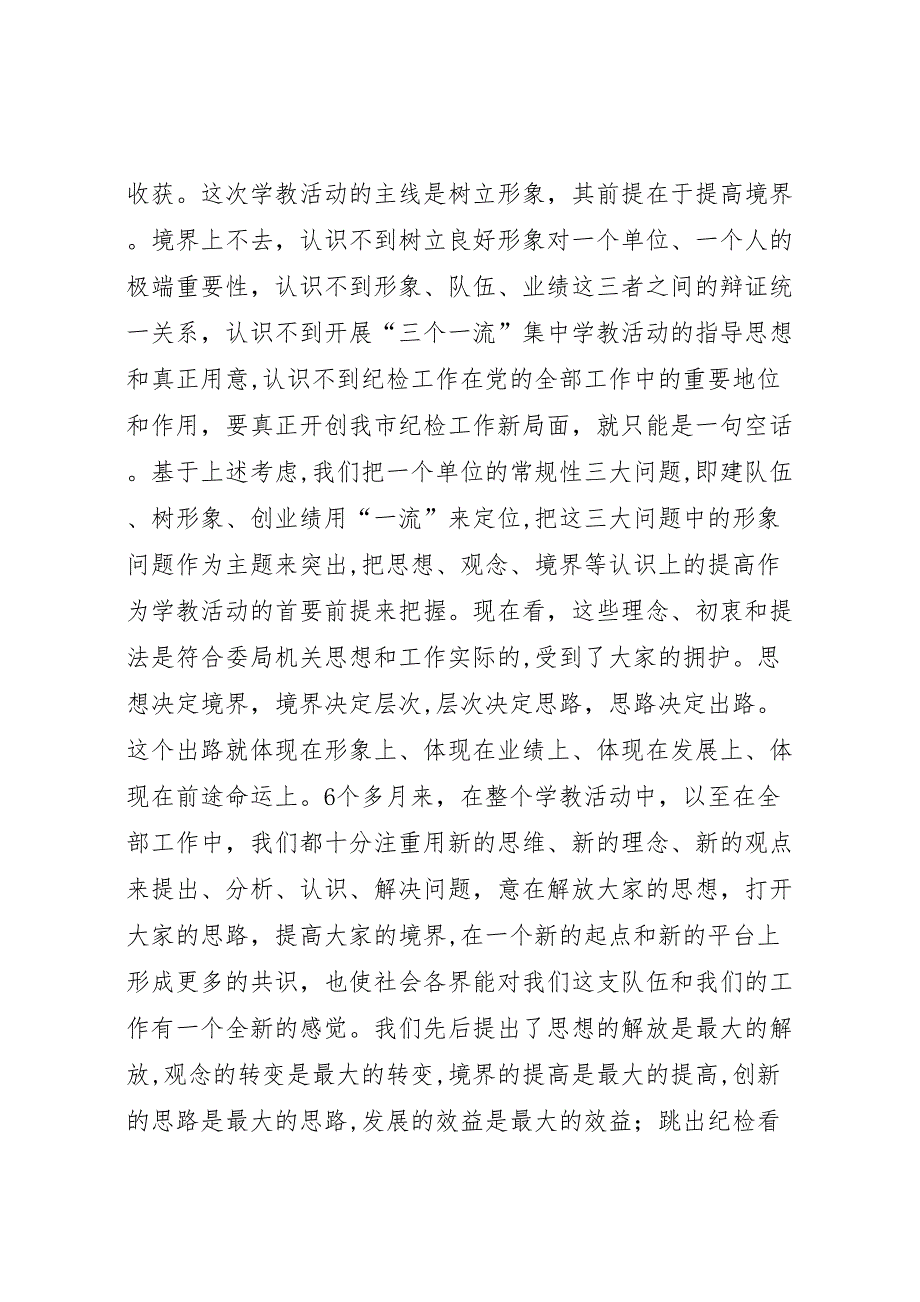 收获。这次学教活动的主线是树立形象，其前提在于提高境界
。境界上不去，认识不到树立良好形象对一个单位、一个人的
极端重要性，认识不到形象、队伍、业绩这三者之间的辩证统
一关系，认识不到开展“三个一流”集中学教活动的指导思想
和真正用意,认识不到纪检工作在党的全部工作中的重要地位
和作用，要真正开创我市纪检工作新局面，就只能是一句空话
。基于上述考虑,我们把一个单位的常规性三大问题,即建队伍
、树形象、创业绩用“一流”来定位,把这三大问题中的形象
问题作为主题来突出,把思想、观念、境界等认识上的提高作
为学教活动的首要前提来把握。现在看，这些理念、初衷和提
法是符合委局机关思想和工作实际的,受到了大家的拥护。思
想决定境界，境界决定层次,层次决定思路，思路决定出路。
这个出路就体现在形象上、体现在业绩上、体现在发展上、体
现在前途命运上。6个多月来，在整个学教活动中，以至在全
部工作中，我们都十分注重用新的思维、新的理念、新的观点
来提出、分析、认识、解决问题，意在解放大家的思想，打开
大家的思路，提高大家的境界,在一个新的起点和新的平台上
形成更多的共识，也使社会各界能对我们这支队伍和我们的工
作有一个全新的感觉。我们先后提出了思想的解放是最大的解
放,观念的转变是最大的转变,境界的提高是最大的提高,创新
的思路是最大的思路,发展的效益是最大的效益；跳出纪检看